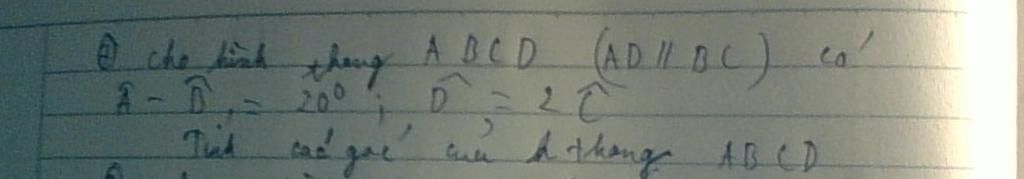 ② cho hình thang ABCD (AD // BC) có
Â - D̂ = 20°; D̂ = 2Ĉ
Tính các góc của h thang ABCD